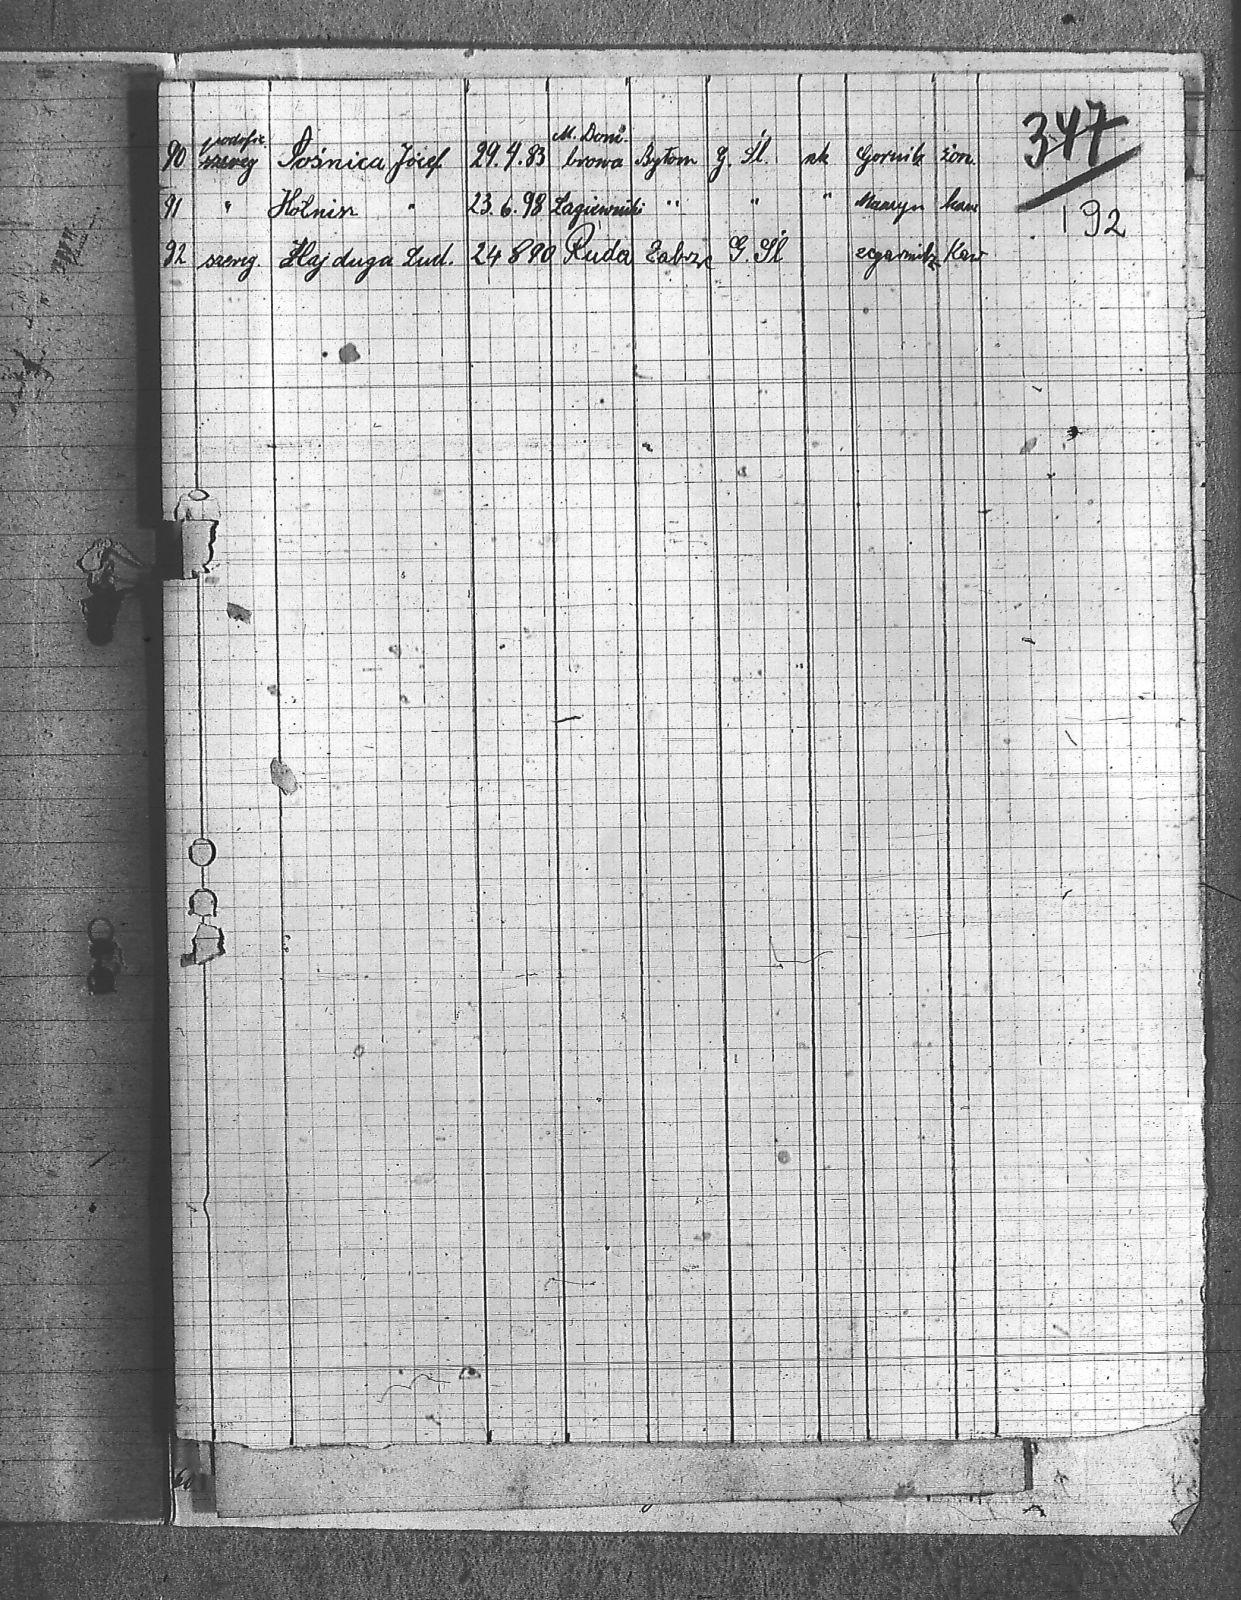 347
192
podofic. M. Dom.
90 szereg Pośnica Józef 29.4.83 browa Bytom G. Śl. rk Gornik żon.
91 " " 23.6.98 Łagiewniki " " " kaw
92 szereg. Hajduga Lud. 24 8 90 Ruda Zabrze G. Śl Kaw